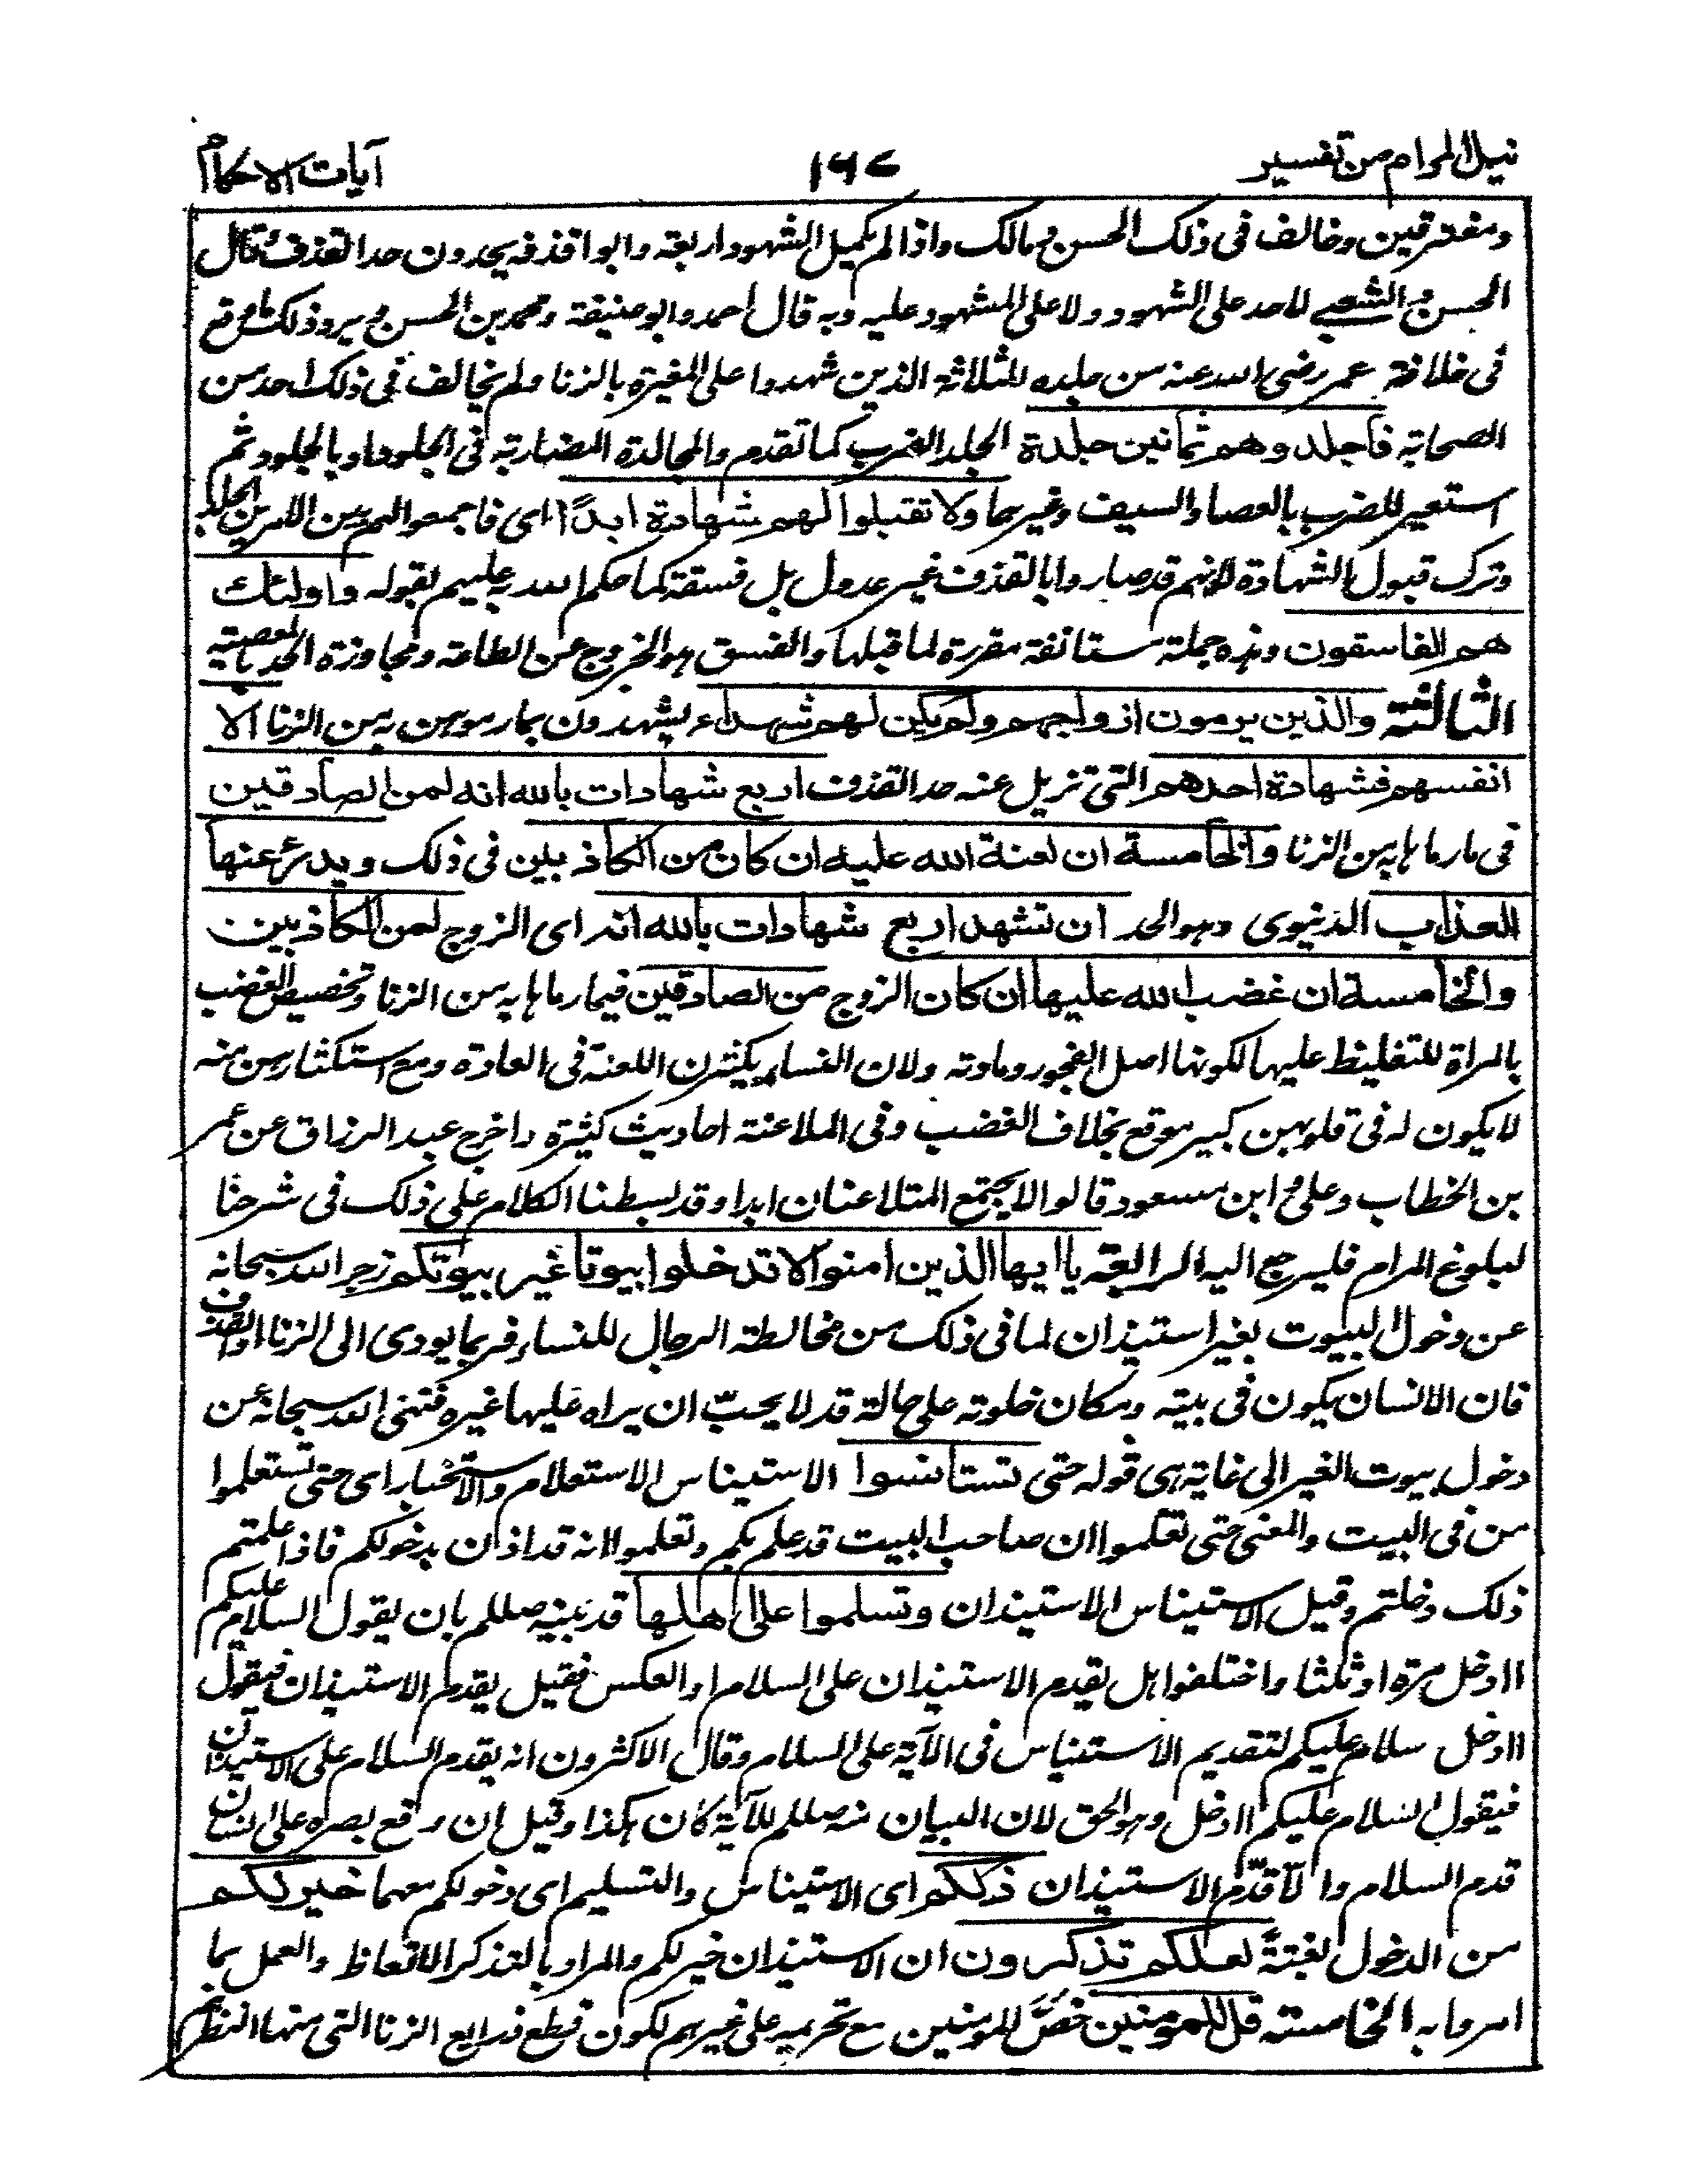 نيل المرام من تفسير
١٦٧
آيات الاحكام
ومفترقين وخالف فى ذلك الحسن ومالك واذا لم يكمل الشهود اربعة وابوا قذفة يحدون حد القذف وقال
الحسن والشعبي لا حد على الشهود ولا على المشهود عليه وبه قال احمد وابو حنيفة ومحمد بن الحسن ويرد ذلك ما وقع
فى خلافة عمر رضى الله عنه من جلده للثلاثة الذين شهدوا على المغيرة بالزنا ولم يخالف فى ذلك احد من
الصحابة فاجلدوهم ثمانين جلدة الجلد الضرب كما تقدم والمجالدة المضاربة فى الجلود او بالجلود ثم
استعير للضرب بالعصا والسيف وغيرهما ولا تقبلوا لهم شهادة ابدًا اى فاجمعوا لهم بين الامرين الجلد
وترك قبول الشهادة لانهم قد صاروا بالقذف غير عدول بل فسقة كما حكم الله به عليهم بقوله واولئك
هم الفاسقون وهذه جملة مستانفة مقررة لما قبلها والفسق هو الخروج عن الطاعة ومجاوزة الحد بالمعصية
الثالثة والذين يرمون ازواجهم ولم يكن لهم شهداء يشهدون بما رموهن به من الزنا الا
انفسهم فشهادة احدهم التى تزيل عنه حد القذف اربع شهادات بالله انه لمن الصادقين
فى ما رماها به من الزنا والخامسة ان لعنة الله عليه ان كان من الكاذبين فى ذلك ويدرؤ عنها
العذاب الدنيوى وهو الحد ان تشهد اربع شهادات بالله انه اى الزوج لمن الكاذبين
والخامسة ان غضب الله عليها ان كان الزوج من الصادقين فيما رماها به من الزنا وتخصيص الغضب
بالمراة للتغليظ عليها لكونها اصل الفجور ومادته ولان النساء يكثرن اللعنة فى العادة ومع استكثارهن منه
لا يكون له فى قلوبهن كبير موقع بخلاف الغضب وفى الملاعنة احاديث كثيرة واخرج عبد الرزاق عن عمر
بن الخطاب وعلى وابن مسعود قالوا لا يجتمع المتلاعنان ابدا وقد بسطنا الكلام على ذلك فى شرحنا
لبلوغ المرام فليرجع اليه الرابعة يا ايها الذين امنوا لا تدخلوا بيوتا غير بيوتكم زجر الله سبحانه
عن دخول البيوت بغير استيذان لما فى ذلك من مخالطة الرجال للنساء فربما يودى الى الزنا او القذف
فان الانسان يكون فى بيته ومكان خلوته على حالة قد لا يحبّ ان يراه عليها غيره فنهى الله سبحانه عن
دخول بيوت الغير الى غاية هى قوله حتى تستانسوا الاستيناس الاستعلام والاستخبار اى حتى تستعلموا
من فى البيت والمعنى حتى تعلموا ان صاحب البيت قد علم بكم وتعلموا انه قد اذن بدخولكم فاذا علمتم
ذلك دخلتم وقيل الاستيناس الاستيذان وتسلموا على اهلها قد بينه صللم بان يقول السلام عليكم
اادخل مرة او ثلثا واختلفوا هل يقدم الاستيذان على السلام او العكس فقيل يقدم الاستيذان فيقول
اادخل سلام عليكم لتقديم الاستيناس فى الآية على السلام وقال الاكثرون انه يقدم السلام على الاستيذان
فيقول السلام عليكم اادخل وهو الحق لان البيان منه صللم للآية كان هكذا وقيل ان وقع بصره على انسان
قدم السلام والّا قدّم الاستيذان ذلكم اى الاستيناس والتسليم اى دخولكم معهما خير لكم
من الدخول بغتةً لعلكم تذكرون ان الاستيذان خير لكم والمراد بالتذكر الاتعاظ والعمل بما
امروا به الخامسة قل للمومنين خصَّ المومنين مع تحريمه على غيرهم لكون قطع ذرايع الزنا التى منها النظر